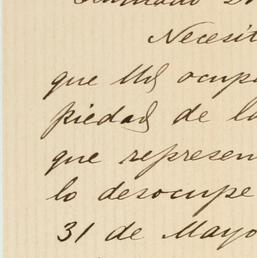 Estimado Dr
Necesit
que Ud ocupa
piedad de la
que represen
lo desocupe
31 de Mayo